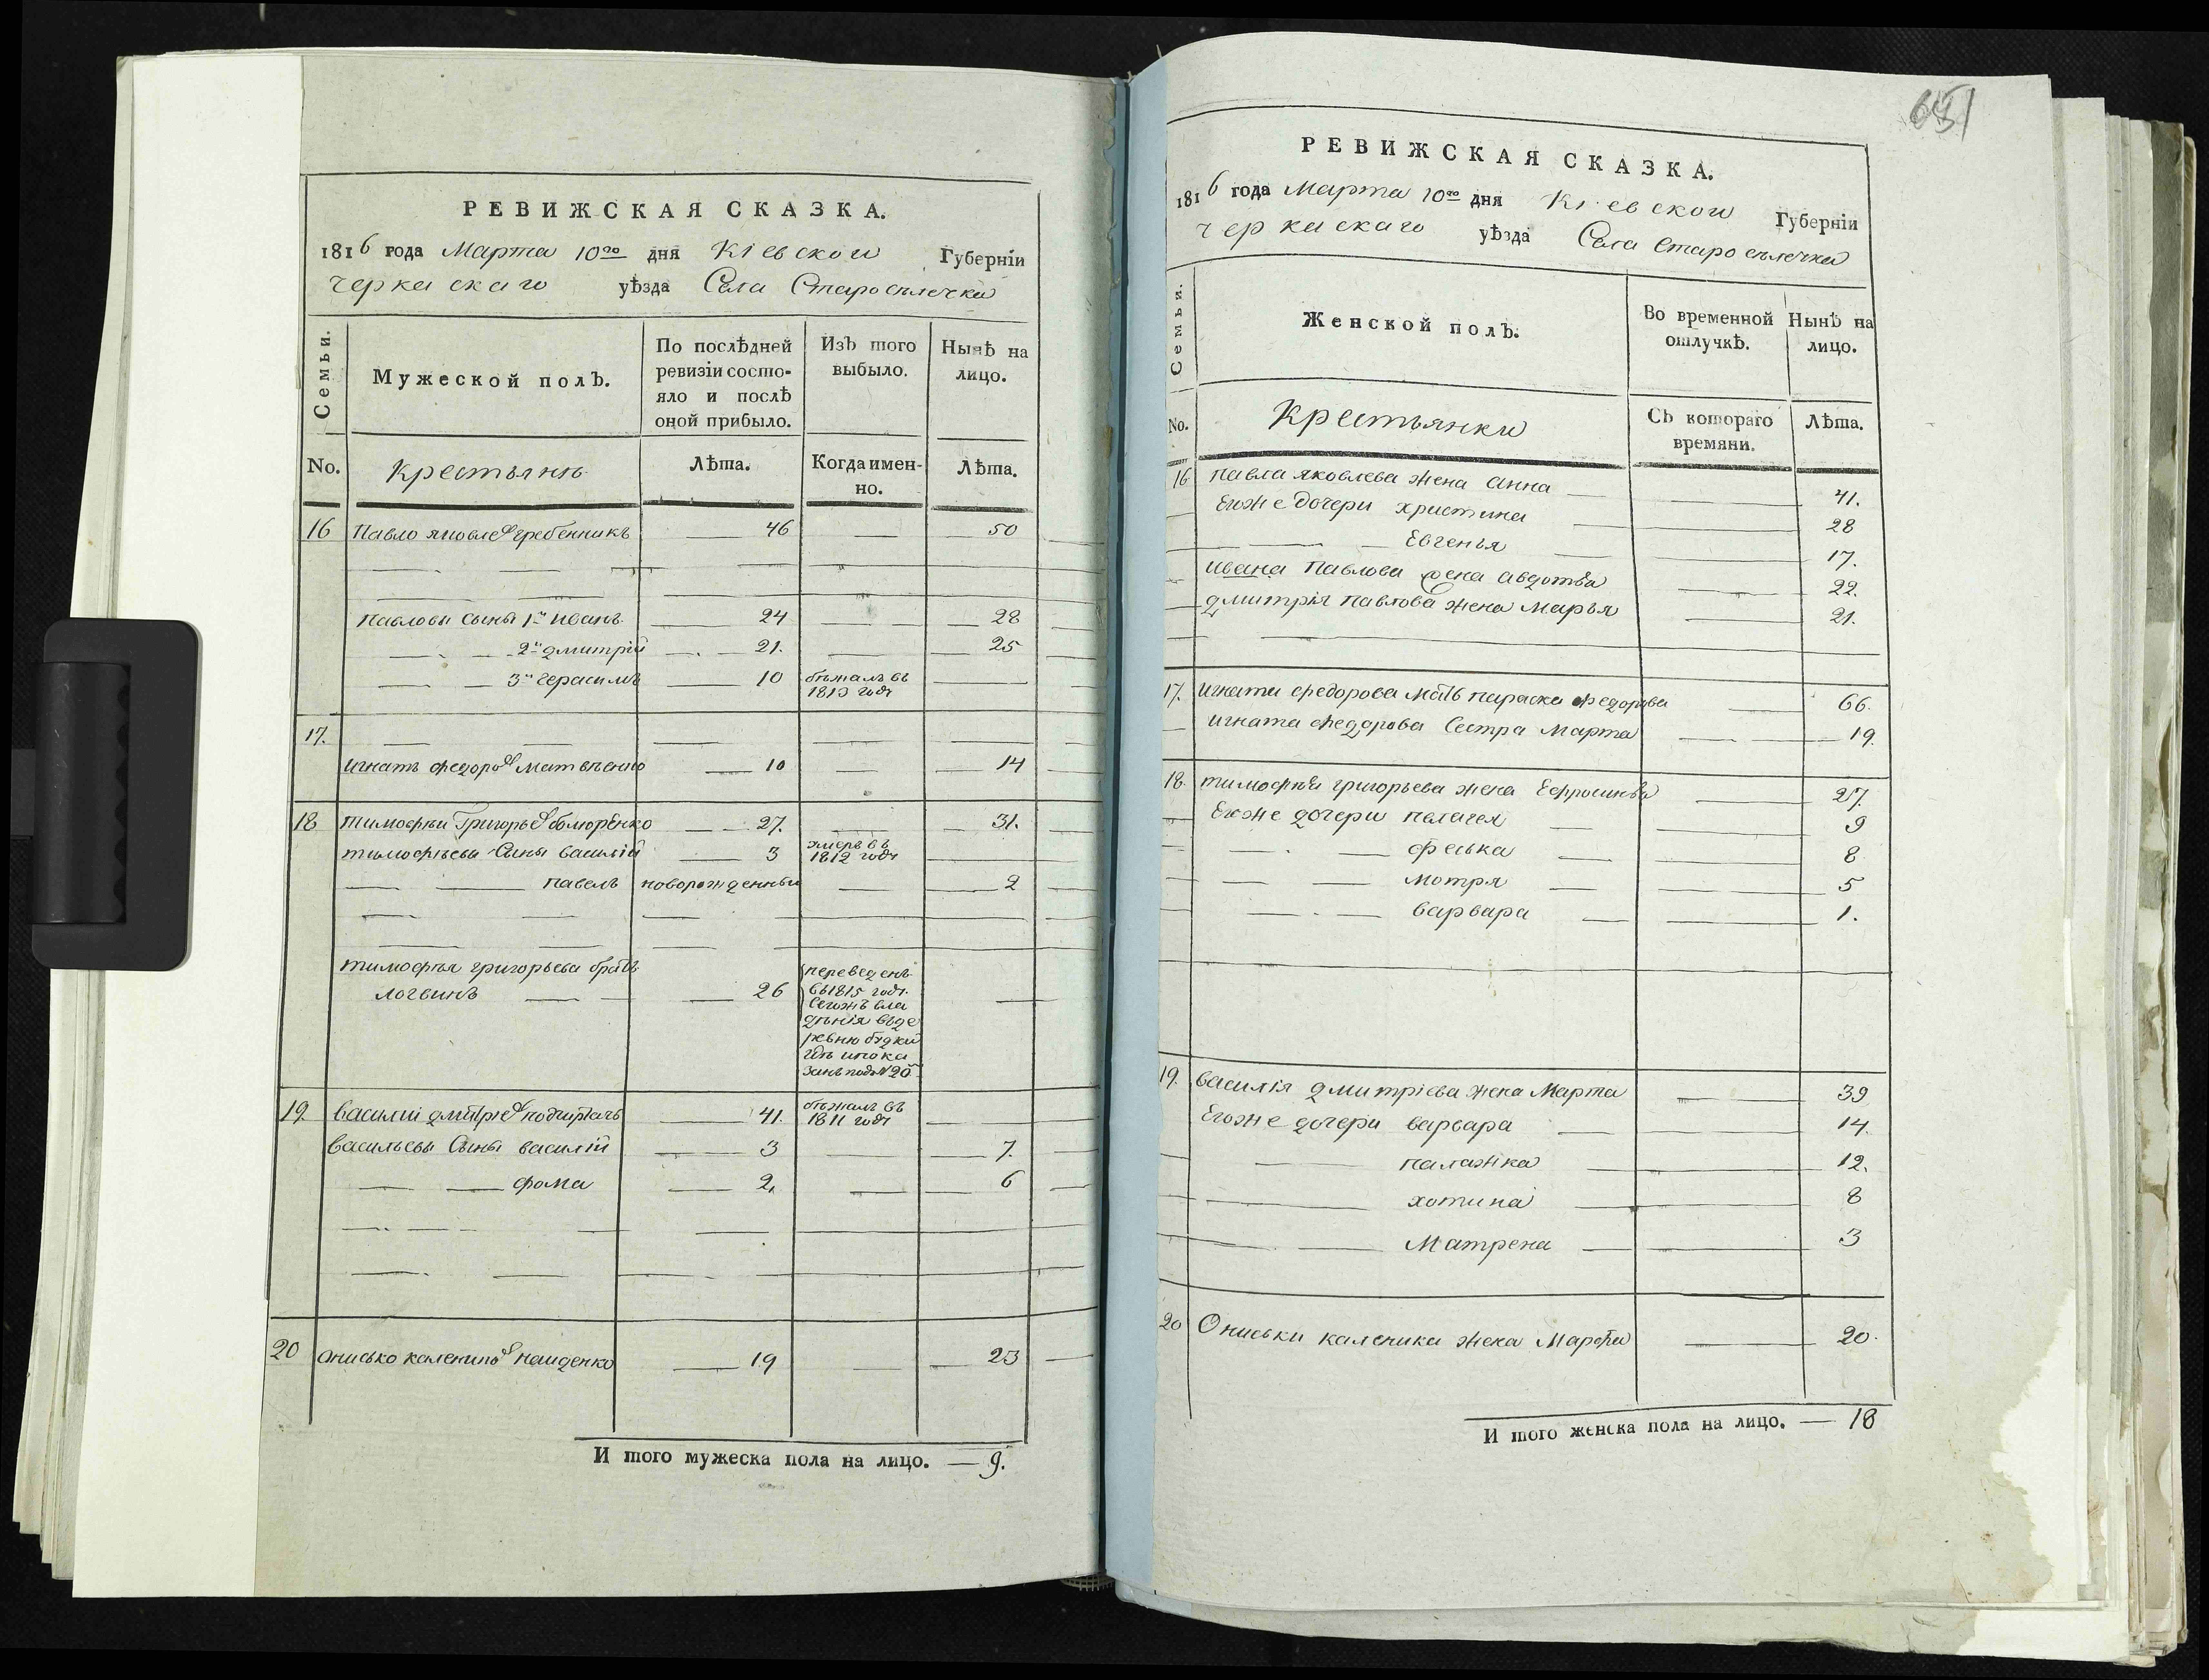 РЕВИЖСКАЯ СКАЗКА.
1816 года Марта 10го дня Кіевской Губерніи
Черкаскаго уѣзда Села Староселечка
Семьи. Мужеской полъ. По послѣдней ревизіи состояло и послѣ оной прибыло. Изъ того выбыло. Нынѣ на лицо.
No. Крестьянѣ Лѣта. Когда именно. Лѣта.
16 Павло яковлев гребенникъ 46 50
Павловы сыны 1й Иванъ 24 28
2й дмитрій 21. 25
3й герасимъ 10 бѣжалъ въ 1813 году
17.
игнатъ федоров матвѣенко 10 14
18 тимофей Григорьев 27. 31.
тимофѣевы Сыны василій 3 умеръ въ 1812 году
павелъ новорожденный 2
тимофѣя григорьева братъ
логвинъ 26 переведенъ
въ 1815 году
сегожъ вла
дѣнія въ де
ревню будки
гдѣ и пока
занъ подъ N 20
19. василій дмитриев 41. бѣжалъ въ 1811 году
васильевы Сыны василій 3 7.
фома 2. 6
20 Онисько каленико найденко 19 23
И того мужеска пола на лицо. — 9.
651
РЕВИЖСКАЯ СКАЗКА.
1816 года Марта 10го дня Кіевской Губерніи
Черкаскаго уѣзда Села Староселечка
Семьи. Женской полъ. Во временной отлучкѣ. Нынѣ на лицо.
No. Крестьянки Съ котораго времяни. Лѣта.
16 павла яковлева жена анна 41.
Егоже дочери христина 28
Евгенья 17.
ивана Павлова жена авдотья 22.
дмитрія павлова жена марья 21.
17. игната федорова мать параска федорова 66.
игната федорова Сестра марта 19.
18. тимофѣя григорьева жена Ефросинья 27.
Егоже дочери пелагея 9
феська 8
мотря 5
варвара 1.
19. василія дмитріева жена Марта 39
Егоже дочери варвара 14.
палажка 12.
хотина 8
Матрена 3
20 Ониськи каленика жена Марфа 20.
И того женска пола на лицо. — 18